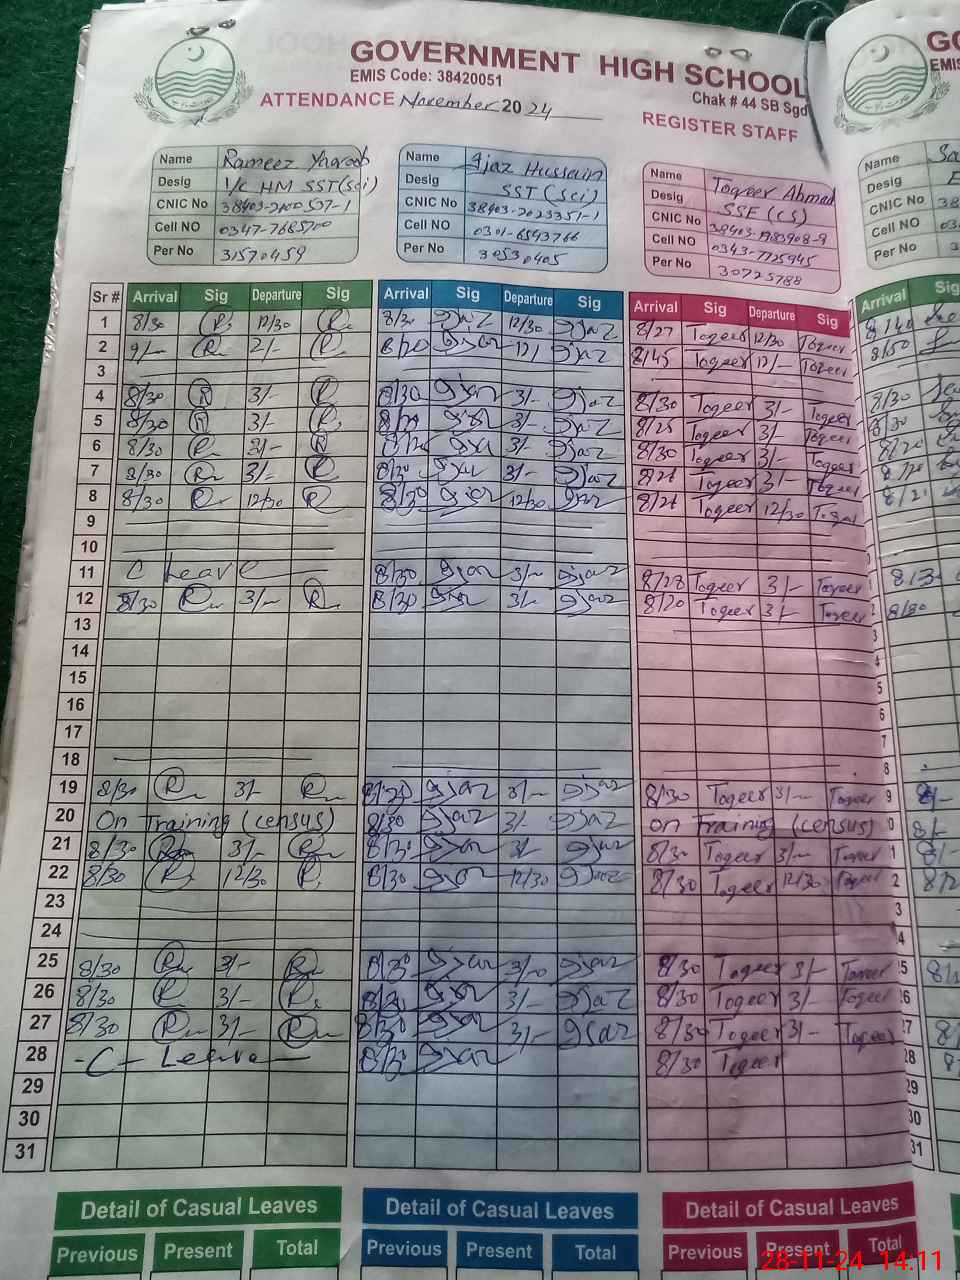 GOVERNMENT HIGH SCHOOL
EMIS Code: 38420051
Chak # 44 SB Sgd
ATTENDANCE November 2024
REGISTER STAFF
Name Rameez Yharoob
Desig I/C HM SST(Sci)
CNIC No
Cell NO 0347-7685700
Per No 31570459
Name Ijaz Hussain
Desig SST (Sci)
CNIC No 38403-2023351-1
Cell NO 0301-6543766
Per No 30530405
Name Toqeer Ahmad
Desig SSE (CS)
CNIC No
Cell NO 0343-7725945
Per No 30725788
Name
Desig
CNIC No 38
Cell NO
Per No
Sr # Arrival Sig Departure Sig Arrival Sig Departure Sig Arrival Sig Departure Sig Arrival Sig
1 8/30 R 12/30 R 8/30 Ijaz 12/30 Ijaz 8/27 Toqeer 12/30 Toqeer
2 9/- R 2/- R Ijaz 12/ Ijaz 8/45 Toqeer 12/- Toqeer 8/50
3
4 8/30 R 3/- R 8/30 Ijaz 3/- Ijaz 8/30 Toqeer 3/- Toqeer 8/30
5 8/30 R 3/- R Ijaz 3/- Ijaz 8/25 Toqeer 3/- Toqeer 8/30
6 8/30 R 3/- R Ijaz 3/- Ijaz 8/30 Toqeer 3/- Toqeer 8/20
7 8/30 R 3/- R 8/30 Ijaz 3/- Ijaz Toqeer 3/- Toqeer 8/20
8 8/30 R 12/30 R 8/30 Ijaz 12/30 Ijaz Toqeer 12/30 Toqeer 8/21
9
10
11 C Leave 8/30 Ijaz 3/- Ijaz 8/28 Toqeer 3/- Toqeer 8/3
12 8/30 R 3/- R 8/30 Ijaz 3/- Ijaz 8/20 Toqeer 3/- Toqeer 8/30
13
14
15
16
17
18
19 8/30 R 3/- R 8/30 Ijaz 3/- Ijaz 8/30 Toqeer 3/- Toqeer
20 On Training (census) 8/30 Ijaz 3/- Ijaz On Training (census) 8/-
21 8/30 R 3/- R 8/30 Ijaz 3/- Ijaz 8/30 Toqeer 3/- Toqeer 8/-
22 8/30 R 12/30 R 8/30 Ijaz 12/30 Ijaz 8/30 Toqeer 12/30 Toqeer
23
24
25 8/30 R 3/- R 8/30 Ijaz 3/- Ijaz 8/30 Toqeer 3/- Toqeer
26 8/30 R 3/- R 8/30 Ijaz 3/- Ijaz 8/30 Toqeer 3/- Toqeer
27 8/30 R 3/- R 8/30 Ijaz 3/- Ijaz 8/30 Toqeer 3/- Toqeer
28 - C - Leave 8/30 Ijaz 8/30 Toqeer
29
30
31
Detail of Casual Leaves Detail of Casual Leaves Detail of Casual Leaves
Previous Present Total Previous Present Total Previous Present Total
28-11-24 14:11